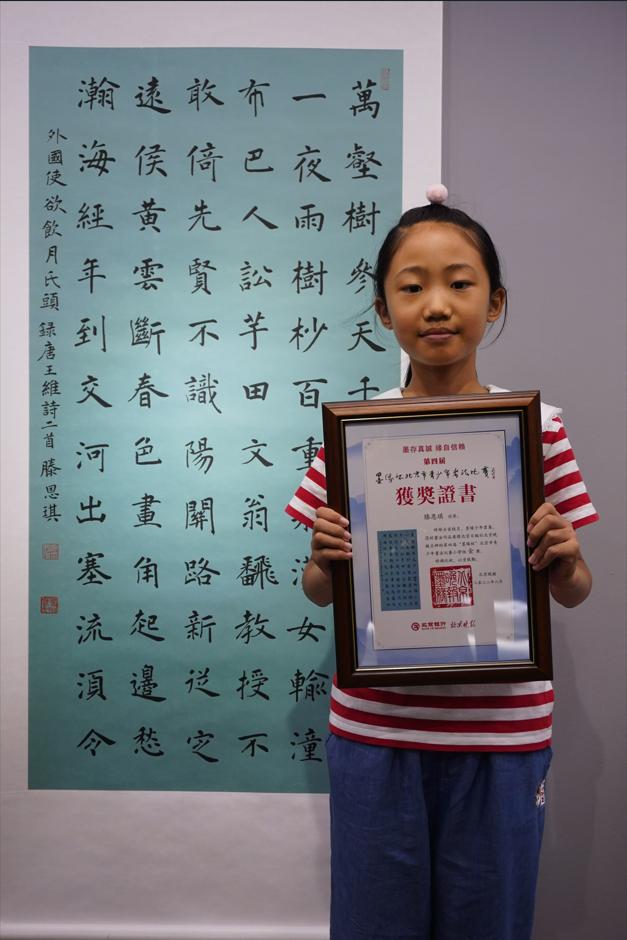 萬壑樹參天千
一夜雨樹杪百重泉漢女輸潼
布巴人訟芋田文翁飜教授不
敢倚先賢不識陽關路新從定
遠侯黃雲斷春色畫角起邊愁
瀚海經年到交河出塞流須令
外國使欲飲月氏頭 録唐王維詩二首 滕思琪
墨存真誠 緣自信賴
第四届
墨緣杯北京市青少年書法比賽
獲獎證書
滕思琪
北京銀行 北京晚報